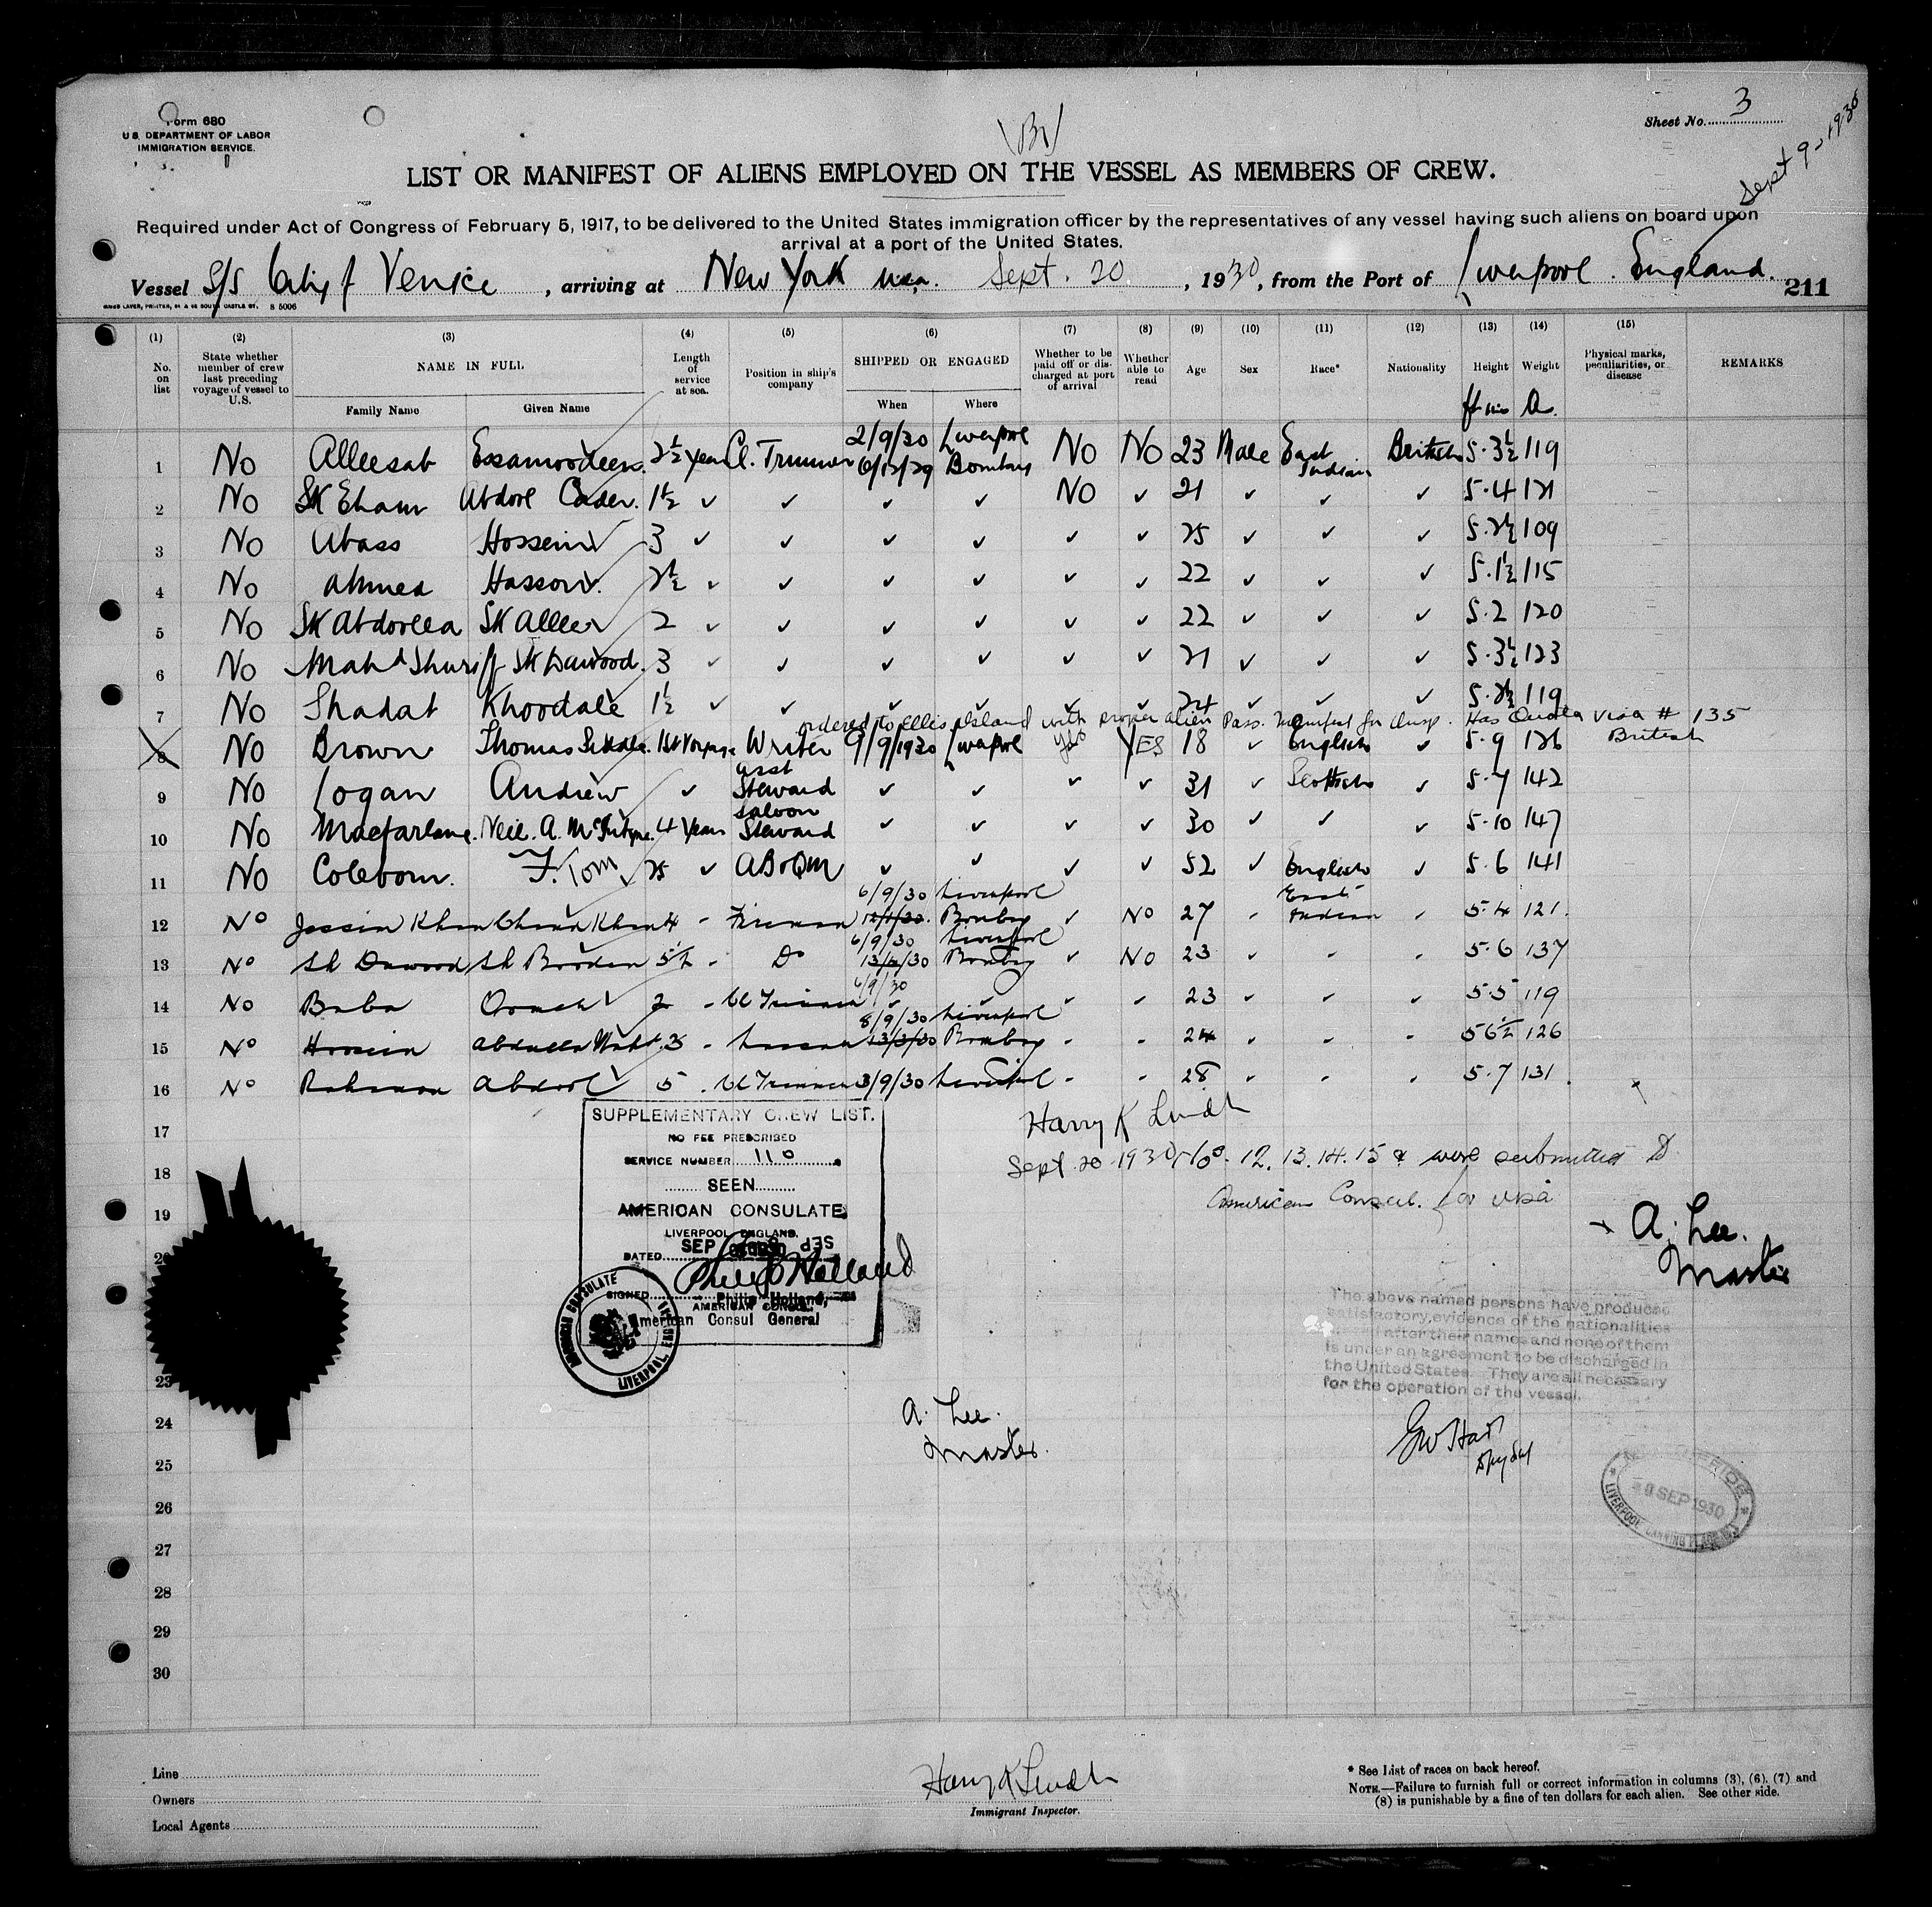 Form 680
U.S. DEPARTMENT OF LABOR
IMMIGRATION SERVICE.
Sheet No. 3
Sept 9-1930
LIST OR MANIFEST OF ALIENS EMPLOYED ON THE VESSEL AS MEMBERS OF CREW.
Required under Act of Congress of February 5, 1917, to be delivered to the United States immigration officer by the representatives of any vessel having such aliens on board upon
arrival at a port of the United States.
Vessel S/S City of Venice, arriving at New York usa. Sept. 20, 1930, from the Port of Liverpool. England.
211
(1) (2) (3) (4) (5) (6) (7) (8) (9) (10) (11) (12) (13) (14) (15)
No. on list
State whether member of crew last preceding voyage of vessel to U.S.
NAME IN FULL
Family Name
Given Name
Length of service at sea.
Position in ship's company
SHIPPED OR ENGAGED
When
Where
Whether to be paid off or discharged at port of arrival
Whether able to read
Age
Sex
Race*
Nationality
Height
Weight
Physical marks, peculiarities, or disease
REMARKS
2/9/30 Liverpool
1 No Alleesab Essamoodeen. 2½ years Cl. Trimmer 6/12/29 Bombay No No 23 Male East Indian British 5.3½ 119
2 No SK Eham Abdool Cader. 1½ ✓ ✓ ✓ ✓ NO ✓ 21 ✓ ✓ ✓ 5.4 121
3 No Abass Hossein 3 ✓ ✓ ✓ ✓ ✓ ✓ 25 ✓ ✓ ✓ 5.2½ 109
4 No Ahmed Hasson. 2½ ✓ ✓ ✓ ✓ ✓ ✓ 22 ✓ ✓ ✓ 5.1½ 115
5 No SK Abdoolla SK Alleer 2 ✓ ✓ ✓ ✓ ✓ ✓ 22 ✓ ✓ ✓ 5.2 120
6 No Mahd Shuriff SK Dawood. 3 ✓ ✓ ✓ ✓ ✓ ✓ 21 ✓ ✓ ✓ 5.3½ 123
7 No Shadat Khoodale 1½ ✓ ✓ ✓ ✓ ✓ ✓ 24 ✓ ✓ ✓ 5.2½ 119
ordered to Ellis Island with proper alien Pass. Manifest for insp. Has Quota Visa # 135
British
8 No Brown Thomas 1st Voyage Writer 9/9/1930 Liverpool yes YES 18 ✓ English ✓ 5.9 126
9 No Logan Andrew ✓ asst Steward ✓ ✓ ✓ ✓ 31 ✓ Scottish ✓ 5.7 142
10 No Macfarlane. Neil. A. McIntyre. 4 Years Saloon Steward ✓ ✓ ✓ ✓ 30 ✓ ✓ ✓ 5.10 147
11 No Colebourn. F. Tom 25 ✓ AB & QM ✓ ✓ ✓ ✓ 52 ✓ English ✓ 5.6 141
6/9/30 Liverpool
12 No Jassim Khan Chand Khan 4 - Fireman Bombay ✓ No 27 - East Indian - 5.4 121.
6/9/30 Liverpool
13 No Sk Dawood Sk Booden 5½ - Do 13/3/30 Bombay ✓ No 23 - - - 5.6 137
6/9/30
14 No Baba 2 - Cl Trimmer ✓ ✓ ✓ - 23 - - ✓ 5.5 119
8/9/30 Liverpool
15 No Hossein 3 - 13/3/30 Bombay - - 24 - - - 5 6½ 126
16 No Rahman Abdool 5 - Cl Trimmer 3/9/30 Liverpool - - 28 - - - 5.7 131.
17
18
19
20
23
24
25
26
27
28
29
30
SUPPLEMENTARY CREW LIST.
NO FEE PRESCRIBED
SERVICE NUMBER 110
SEEN
AMERICAN CONSULATE
LIVERPOOL, ENGLAND.
DATED SEP
SIGNED Philip Holland
Philip Holland,
American Consul General
AMERICAN CONSULATE
LIVERPOOL, ENGLAND
Harry K Lindh
Sept 20 1930 Nos. 12. 13. 14. 15 & were submitted to
American Consul. for visa
A. Lee.
Master
The above named persons have produced
satisfactory evidence of the nationalities
after their names and none of them
is under an agreement to be discharged in
the United States. They are all necessary
for the operation of the vessel.
A. Lee.
Master.
SEP 1930
LIVERPOOL CANNING PLACE
Line
Owners
Local Agents
Harry K Lindh
Immigrant Inspector.
* See List of races on back hereof.
NOTE.—Failure to furnish full or correct information in columns (3), (6), (7) and
(8) is punishable by a fine of ten dollars for each alien. See other side.